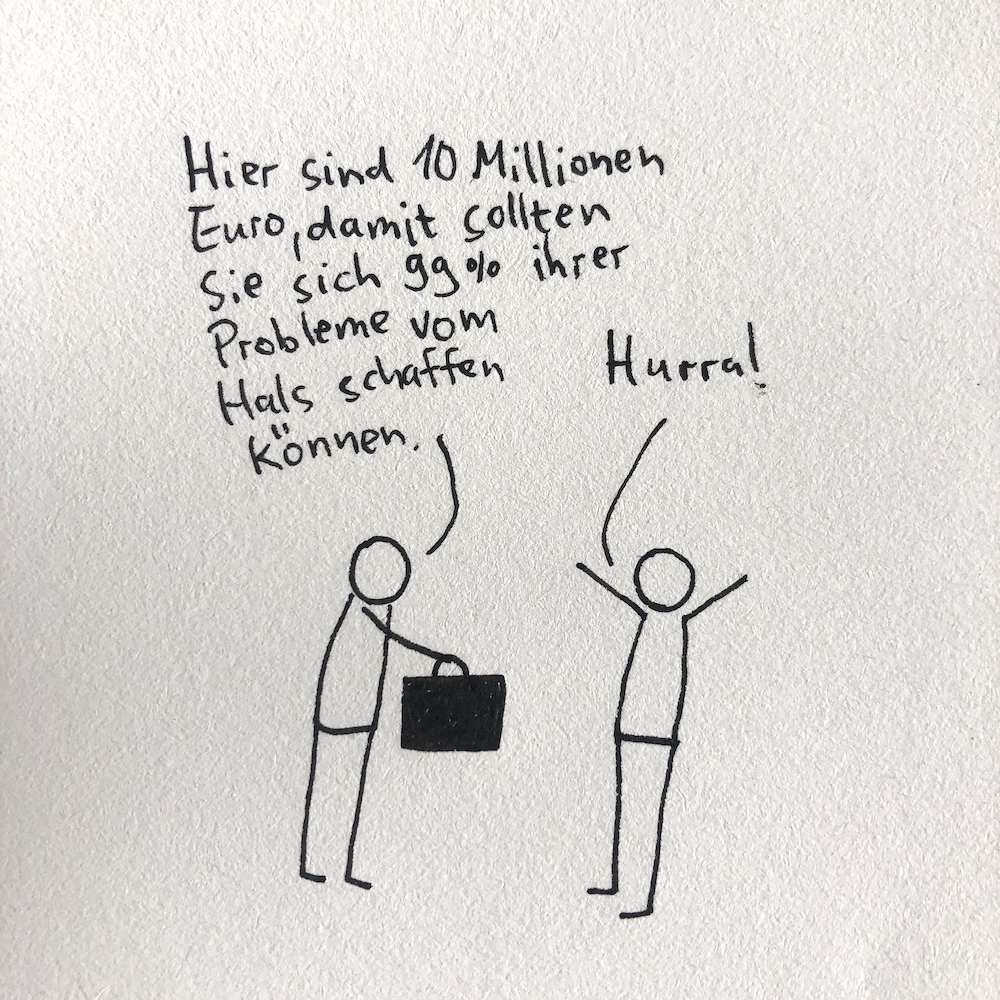 Hier sind 10 Millionen
Euro, damit sollten
Sie sich 99% ihrer
Probleme vom
Hals schaffen
können.
Hurra!